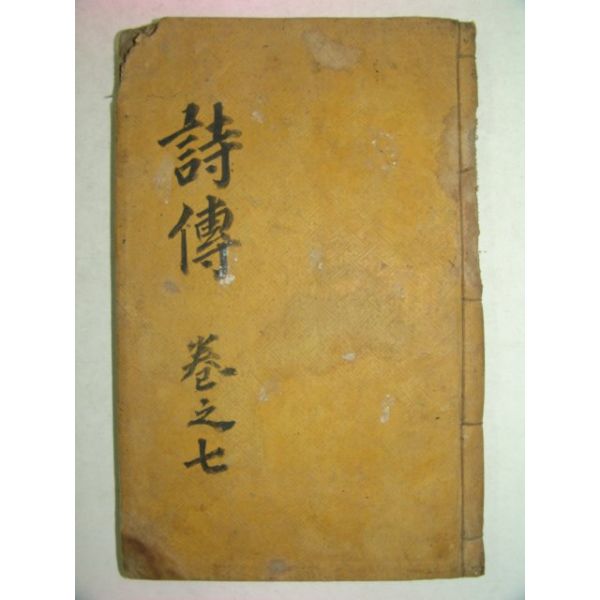 詩傳
卷之七